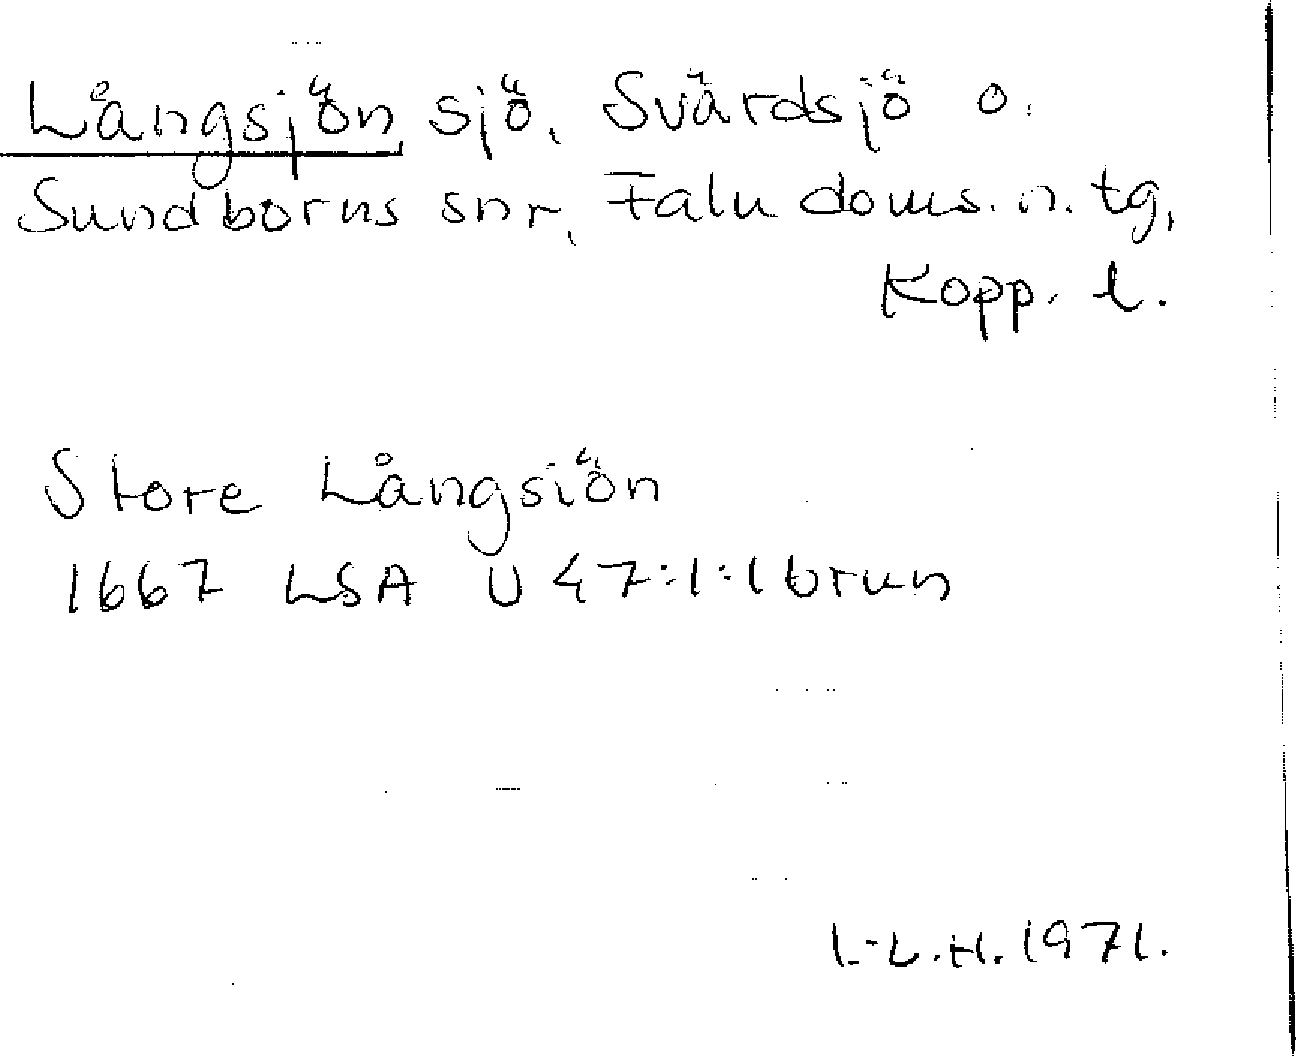 Långsjön sjö, Svärdsjö o.
Sundborns snr, Falu doms. n. tg,
Kopp. l.
Store Långsiön
1667 LSA U 47:1:1 brun
I.-L.H. 1971.